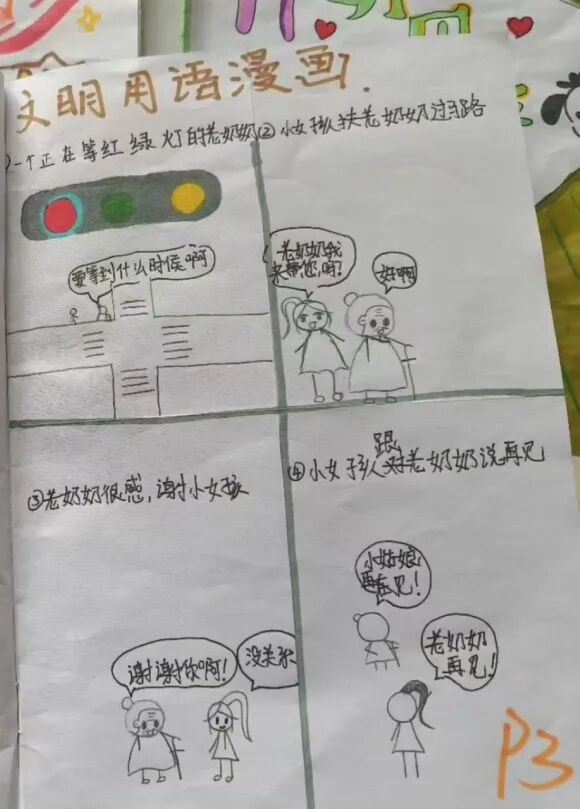 文明用语漫画.
①一个正在等红绿灯的老奶奶
要等到什么时侯啊
②小女孩扶老奶奶过马路
老奶奶我
来帮您,吗?
好啊
③老奶奶很感,谢小女孩
谢谢你啊!
没关系
④小女孩跟对老奶奶说再见
小姑娘
再见!
老奶奶
再见!
P3